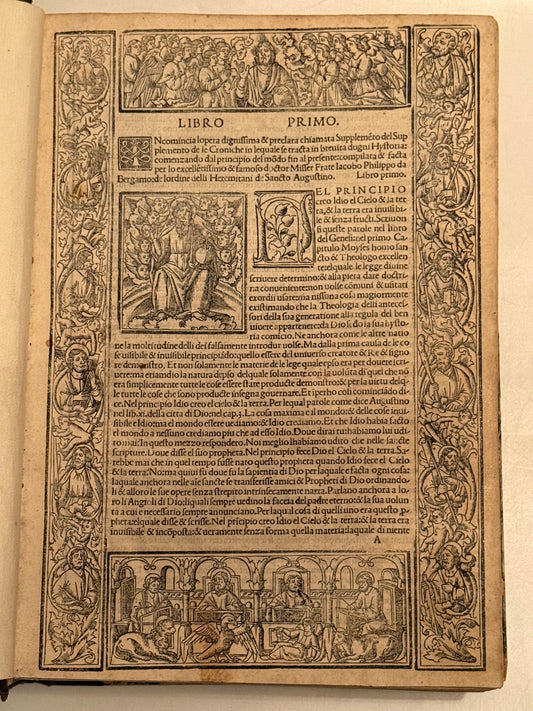 LIBRO PRIMO.
INcomincia lopera dignissima & preclara chiamata Supplemẽto del Sup
plemento de le Croniche in lequale se tracta in breuita dogni Hystoria:
comenzando dal principio del mõdo fin al presente: compilata & facta
per lo excellẽtissimo & famoso doctor Misser Frate Iacobo Philippo da
Bergamo: de lordine delli Heremitani de Sancto Augustino. Libro primo.
NEL PRINCIPIO
creo Idio el Cielo & la ter
ra, & la terra era inuisibi
le & senza fructi. Scriuon
si queste parole nel libro
del Genesi: nel primo Ca
pitulo Moyses homo san
cto & Theologo excellẽ
te: elquale le legge diuine
scriuere determino: & alla piera dare doctri
na conueniente: non uolse cõmuni & usitati
exordii usare: ma nissuna cosa magiormente
existimando che la Theologia delli anteces
sori della sua generatione alla regula del ben
uiuere appartenere: da Dio si, do la sua hysto
ria comicio. Ne anchora come le altre natio
ne la moltitudine delli dei falsamente introdur uolse. Ma dalla prima causa de le co
se uisibile & inuisibile principiãdo: quello essere del uniuerso creatore & Re & signo
re demonstro, Et non solamente le materie de le legge quale epso era per douere scri
uere: ma etiandio la natura depso delquale solamente con la uolũta di quel che nõ
era simplicemente tutte le cose essere state producte demonstro: & per la uirtu delqua
le tutte le cose che sono producte insegna gouernare. Et iperho coli cominciado di
ce. Nel principio Idio creo el cielo & la terra. Per lequal parole come dice Augustino
nel lib. xi. della citta di Dio: nel cap. 3. La cosa maxima e al mondo: & delle cose inui
sibile e Idio: ma el mondo essere uediamo: & Idio crediamo. Et che Idio habia facto
el mondo a nessuno crediamo piu che ad esso Idio. Doue dirai tu: habiamo lui udi
to: mai in questo mezzo respondero. Noi meglio habiamo udito che nelle sãcte
scripture. Doue disse el suo propheta. Nel principio fece Dio el Cielo & la terra. Sa
rebbe mai che in quel tempo fusse nato questo propheta quando Idio fece el Cielo
& la terra: No: ma qui ui fu doue fu la sapientia di Dio per laquale e facta ogni cosa:
laquale anchora nelle aĩe sancte se transferisse amici & Propheti di Dio ordinando
li & allorole sue opere senza strepito intrinsecamente narra. Parlano anchora a lo
ro li Angioli di Dio: liquali sempre uedino la faccia del patre eterno: & la sua uolun
ta a cui e necessario sempre annunciano. Per laqual cosa di quelli uno era questo p̃o
pheta: equale disse & scrisse. Nel prĩcipio creo Idio el Cielo & la terra: & la terra era
inuisibile & incõposta: & ueramente senza forma quella materia: laquale di niente
A